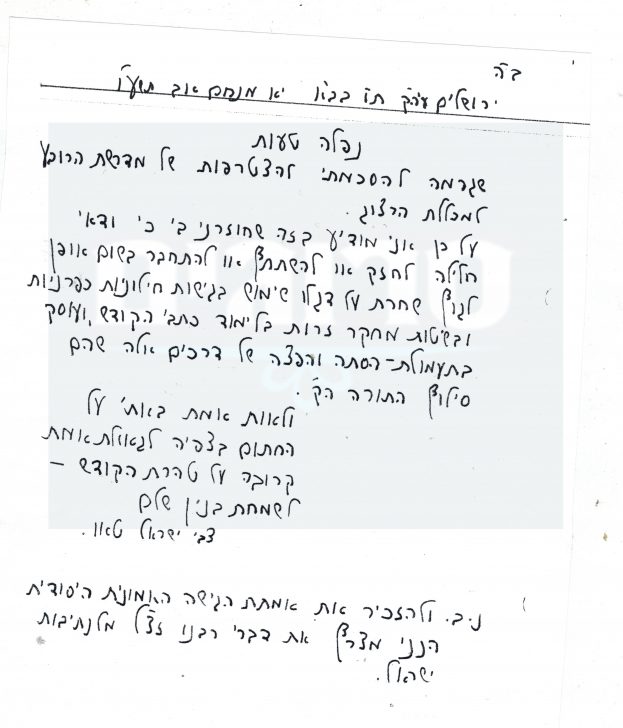 ב״ה
ירושלים עיה״ק ת״ו בבא״ו יא מנחם אב תשע״ו
נפלה טעות
שגרמה להסכמתי להצטרפות של מדרשת הרובע
למכללת הרצוג.
על כן אני מודיע בזה שחוזרני בי כי ודאי
חלילה לחזק או להשתתף או להתחבר בשום אופן
לגוף שחרת על דגלו שימוש בגישות חילוניות כפרניות
ובשיטות מחקר זרות בלימוד כתבי הקודש, ועוסק
בתעמולת-הסתה והפצה של דרכים אלה שהם
סילוף התורה הק׳.
ולאות אמת באתי על
החתום בצפיה לגאולת אמת
קרובה על טהרת הקודש –
לשמחת בנין שלם
צבי ישראל טאו.
נ.ב. ולהזכיר את אמתת הגישה האמונית היסודית
הנני מצרף את דברי רבנו זצ״ל מלנתיבות
ישראל.
שמאים